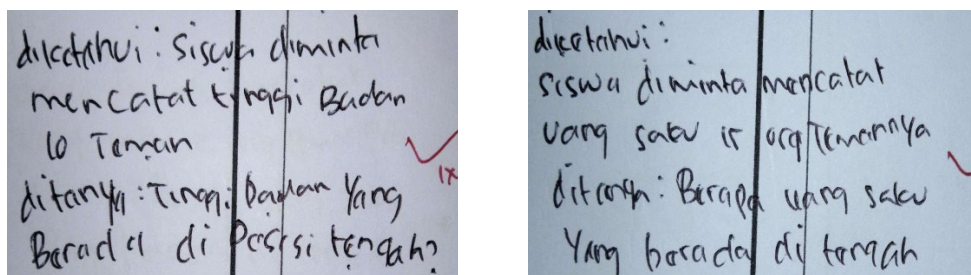 diketahui : siswa diminta
mencatat tinggi Badan
10 Teman
ditanya : Tinggi Badan Yang
Berada di Posisi tengah?
diketahui :
siswa diminta mencatat
uang saku 15 org Temannya
ditanya : Berapa uang saku
Yang berada di tengah